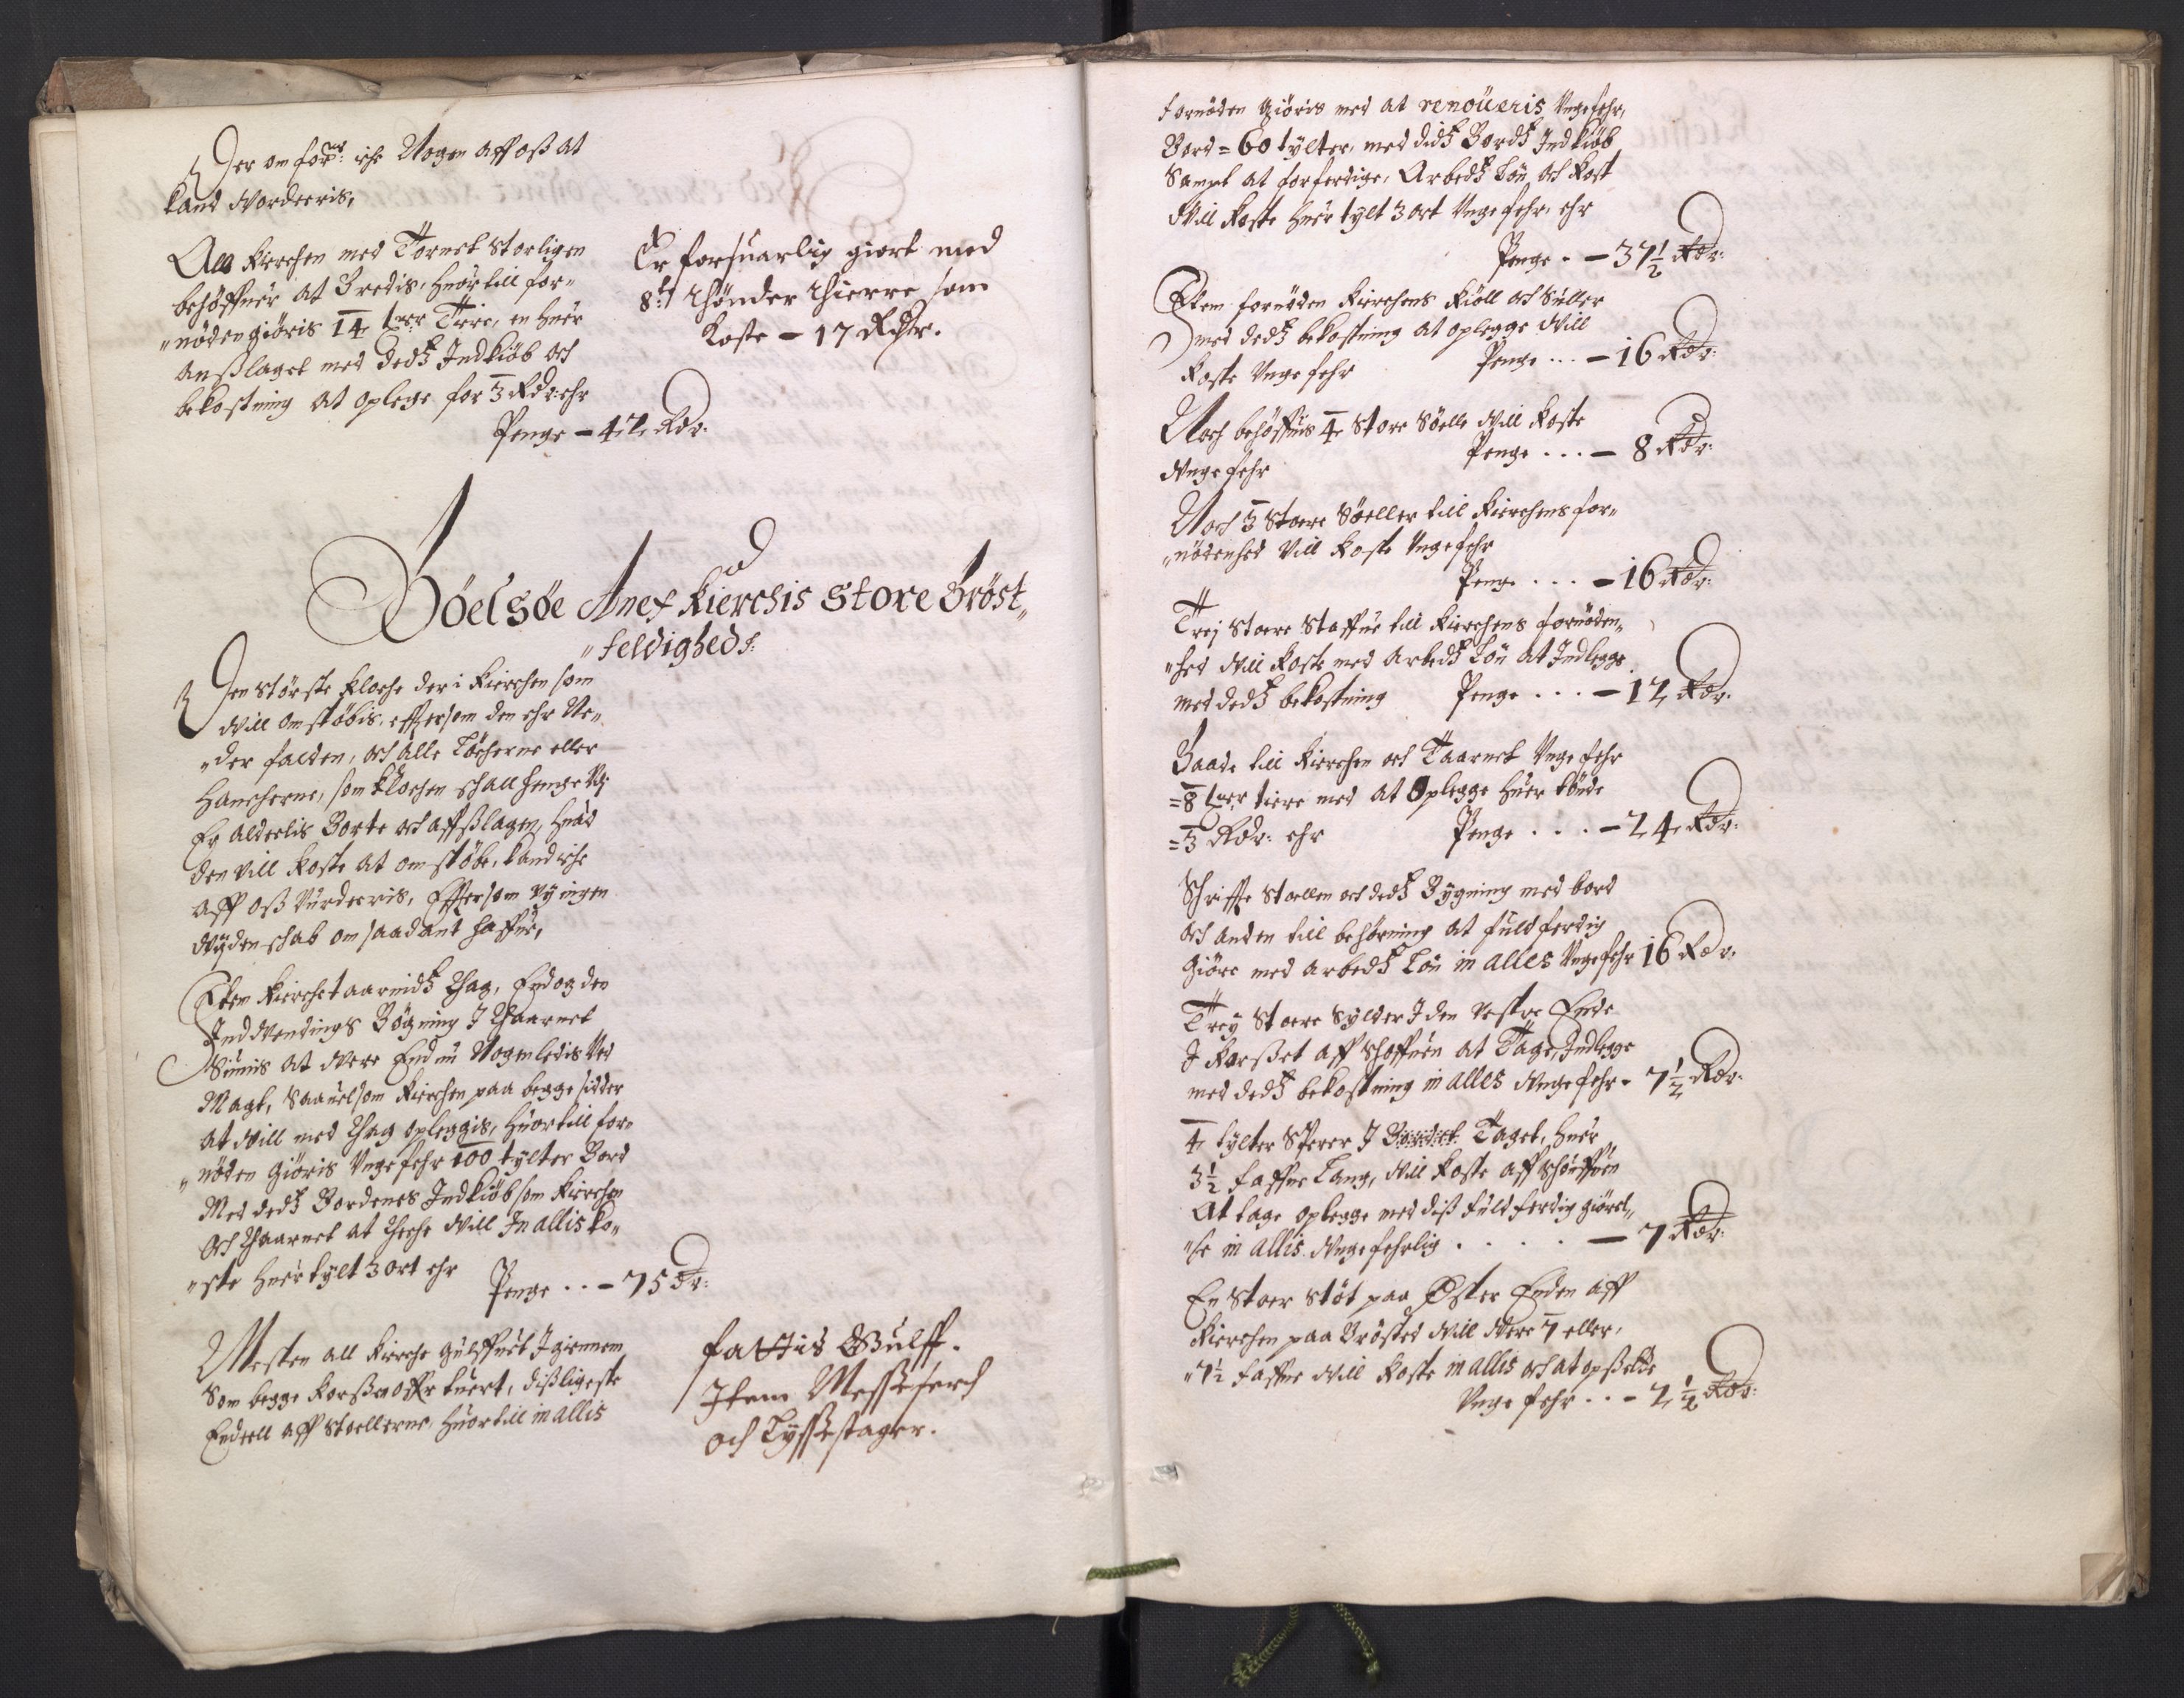 Der om for:ne iche Nogen aff oß at
kand Wordeeris,
Als Kierchen med Tornet storligen
behöffuer at Bredis, huor till for-
"nöden giöris 14 tnr Tiere, en huer
anßlaget med deds Indkiöb och
bekostning at oplege for 3 Rdr: ehr
Penge – 42 Rdr.
Er forsuarlig giort med
8 1/2 thönder thierre som
koste – 17 Rdr.
Böelsöe Anex Kierchis Store Bröst-
"feldigheds:
Den störste kloche der i Kierchen som
Will omstöbis, effter som den ehr Ne-
"der falden, och alle Löcherne eller
Hancherne, som klochen schall henge Vj
Er aldeelis Borte och affßlagen, huad
den Vill koste at omstöbe, kand iche
aff oß Vurdeeris, Effter som Vy ingen
Wydenschab om saadant haffue,
Item Kierchetaarnids Thag, Endog den
Indvendings Bögning J Thaarnet
Siunis at Were End nu Nogenledis Ved
Magt, Saauelsom Kierchen paa begge sidder
at Will med Thag opleggis, huortill for-
"nöden giöris Vngefehr 100 tylter Bord
Med deds Bordenes Indkiöb som Kierchen
och Thaarnet at theche Will In allis ko-
"ste huer tylt 3 ort ehr
Penge . . – 75 Dr:
Mesten all Kierche gulffuet J giennem
Som begge korßene offuer tuert, dißligeste
Endeell aff stoellerne, huortill in allis
fattis Gulff.
Item Messeserch
och Lyssestager.
fornöden giöris med at renoueris Vngefehr,
Bord = 60 tylter, med dids Bords Indkiöb
Sampt at forferdige, Arbeds Lön och Kost
Will koste huer tylt 3 ort Vngefehr, ehr
Penge . – 37 1/2 Rdr:
Item fornöden Kierchens Kiöll och Suller
med deds bekostning at oplegge Will
koste Vngefehr Penge ... – 16 Rdr:
Noch behöffuis 4 Store Söelle Will koste
Vngefehr Penge ... – 8 Rdr:
Noch 3 Stoere Söeller till Kierchens for-
"nödenhed Vill koste Vngefehr
Penge ... – 16 Rdr:
Trej Stoere Staffue till Kierchens fornöden-
"hed Will koste med arbeds Lön at Indlegge
med deds bekostning Penge ... – 12 Rdr.
Baade till Kierchen och Taarnet Vngefehr
= 8 tnr tiere med at Oplegge huer tönde
= 3 Rdr: ehr Penge ... – 24 Rdr:
Schriffte Stoellen och deds Bygning med bord
och anden till behörning at fuldferdig
Giöre med arbeds Lön in alles Vngefehr 16 Rdr.
Trey Stoere Sylder J den Vestre Ende
J korßet aff Schoffuen at Tage, Indlegge
med deds bekostning in alles Vngefehr . 7 1/2 Rdr.
4 tylter Sperer J Taget, huer
3 1/2 faffne Lang, Will koste aff Schouffuen
At tage oplegge med diß fuldferdig giörel-
"se in allis Vngefehrlig . . . . – 7 Rdr:
En Stoer Stöt paa Öster Enden aff
Kierchen paa Brösted Will Were 7 eller,
"7 1/2 faffne Will koste in allis och at opßette
Vngefehr . . – 2 1/2 Rdr: